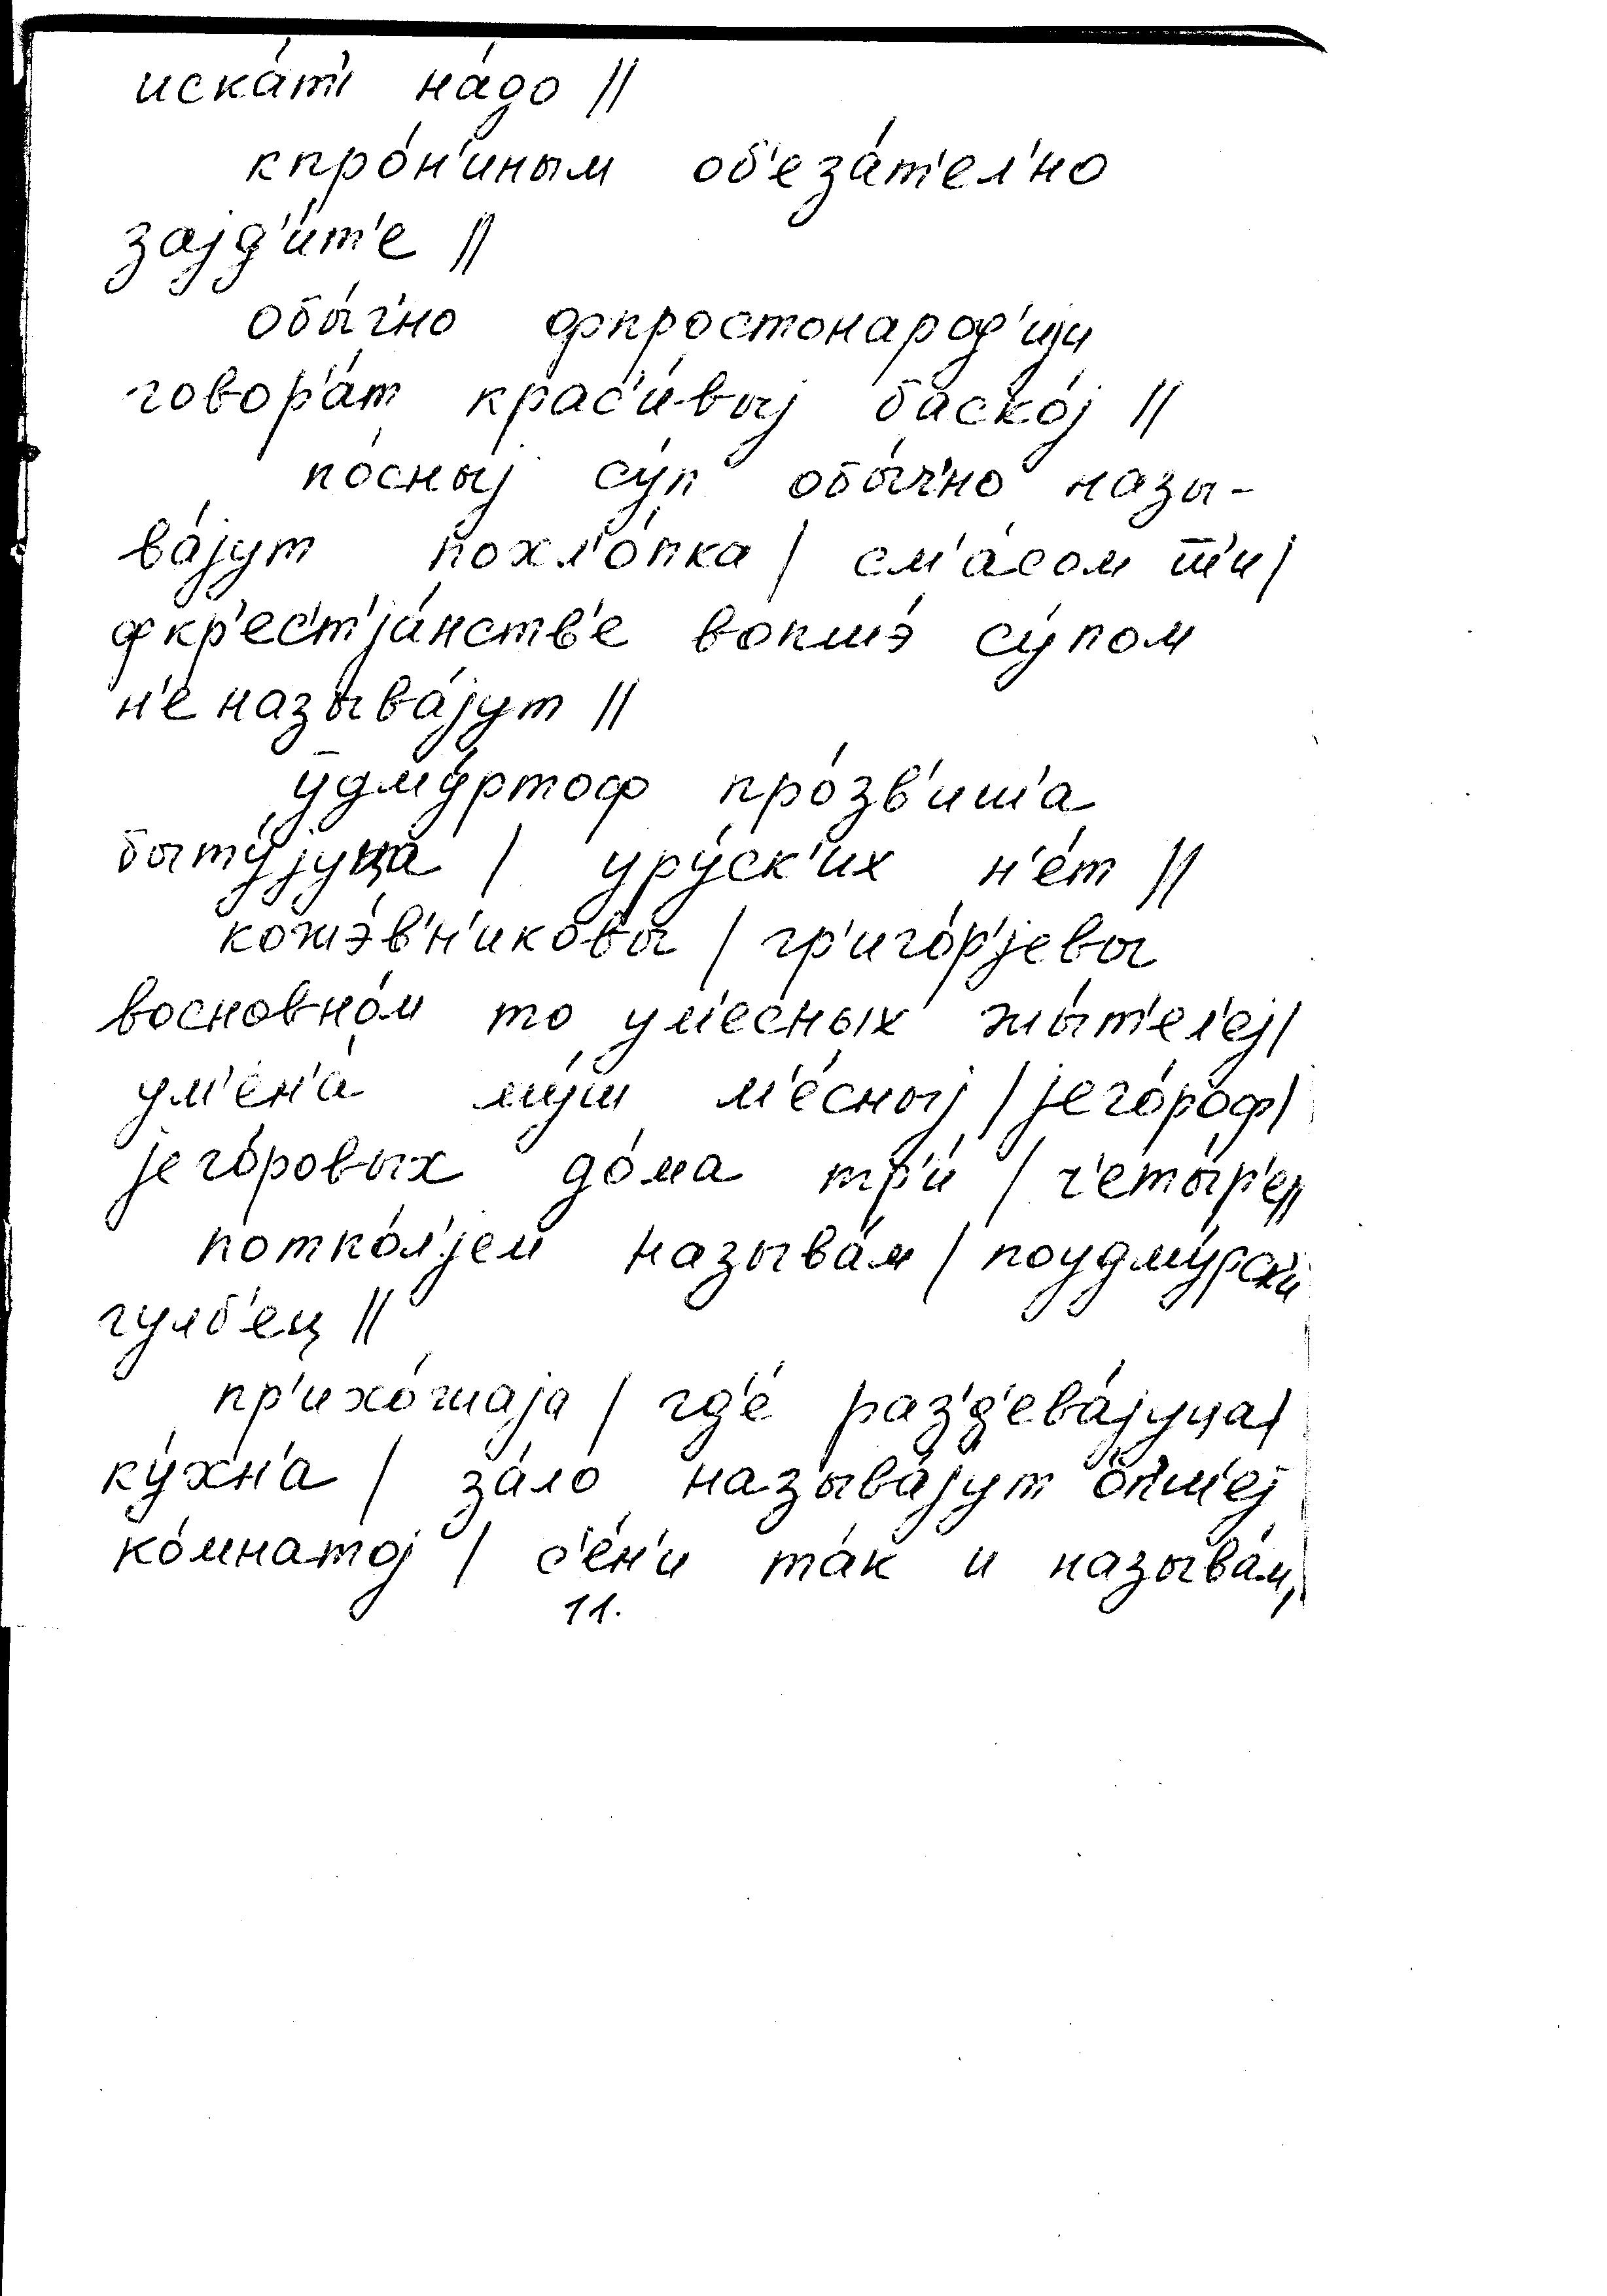 иска́т' на́до ||
кпро́н'иным об'еза́т'ел'но
зајд'и́т'е ||
обы́ч'но фпростонарод'ији
говор'а́т крас'и́выј баско́ј ||
по́сныј су́п обы́ч'но назы-
ва́јут похл'о́пка | см'а́сом ш̅'и |
фкр'ес'т'ја́нств'е вопшэ́ су́пом
н'е называ́јут ||
у̅дму́ртоф про́зв'иш'а
быту́јуца | уру́ск'их н'е́т ||
кожэ́в'н'иковы | гр'иго́р'јевы
восновно́м то ум'е́сных жы́т'ел'еј |
ум'ен'а́ му́ш м'е́сныј | јего́роф |
јего́ровых до́ма тр'и́ | ч'еты́р'е ||
потпо́л'јем называ́м | поудму́рск'и
гулб'ец ||
пр'ихо́шаја | гд'е́ раз'д'ева́јуца |
ку́хн'а | за́ло называ́јут о́пш'еј
ко́мнатој | с'е́н'и та́к и называ́м,
11.